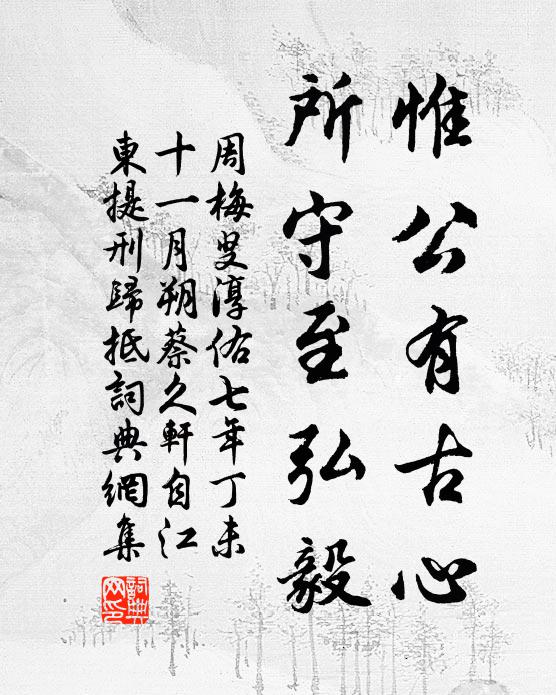 惟公有古心
所守至弘毅
周梅叟淳佑七年丁未
十一月朔蔡久軒自江
東提刑歸抵詞典網集
詞典網印